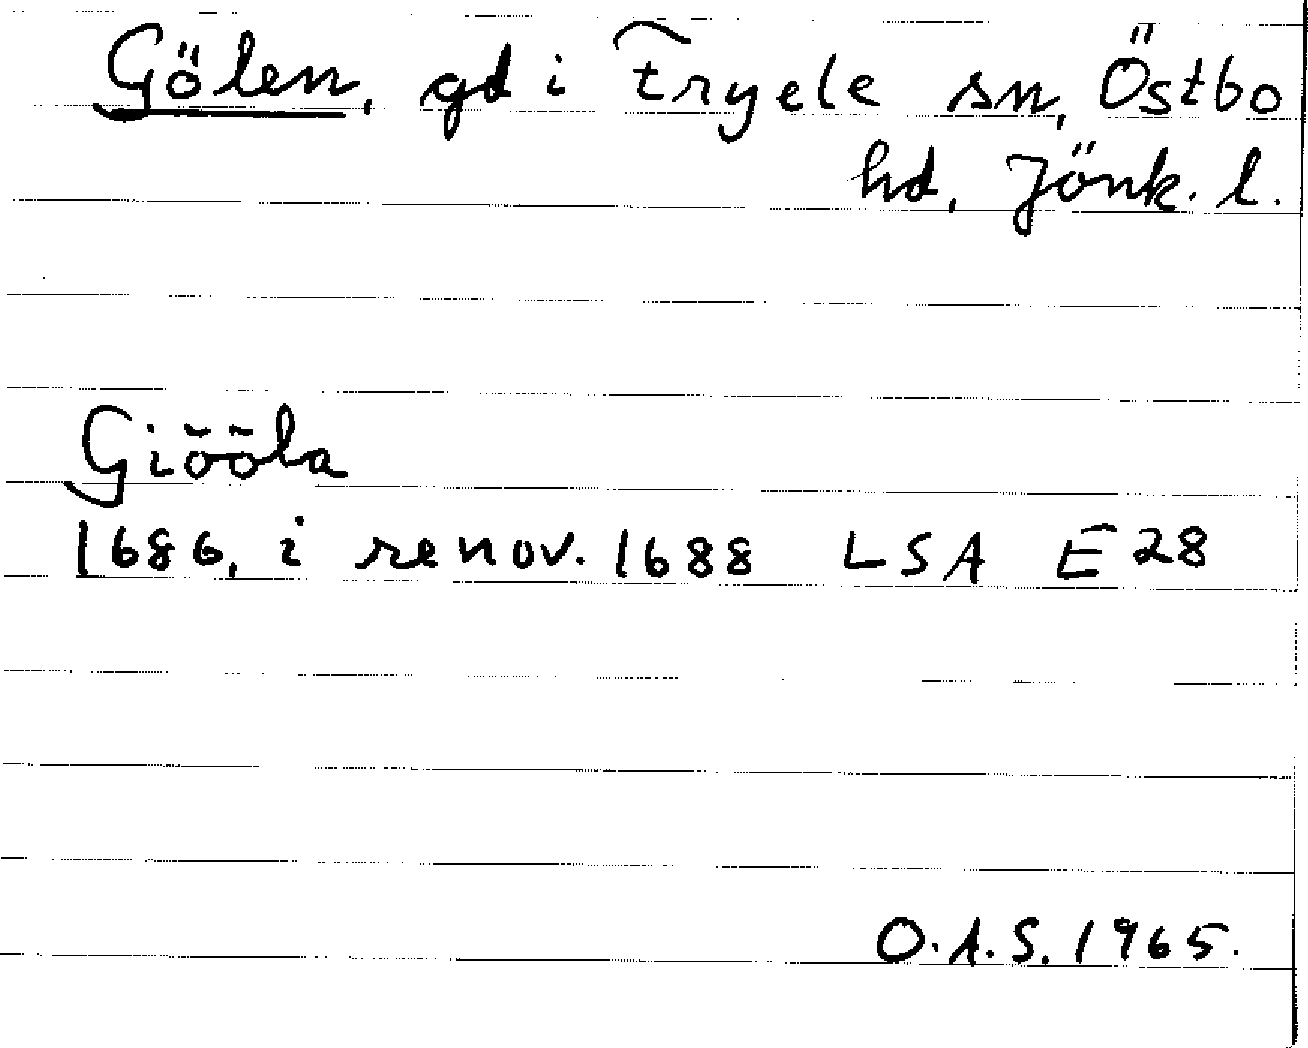 Gölen, gd i Fryele sn, Östbo
hd, Jönk. l.
Giööla
1686, i renov. 1688 LSA E 28
O.A.S. 1965.